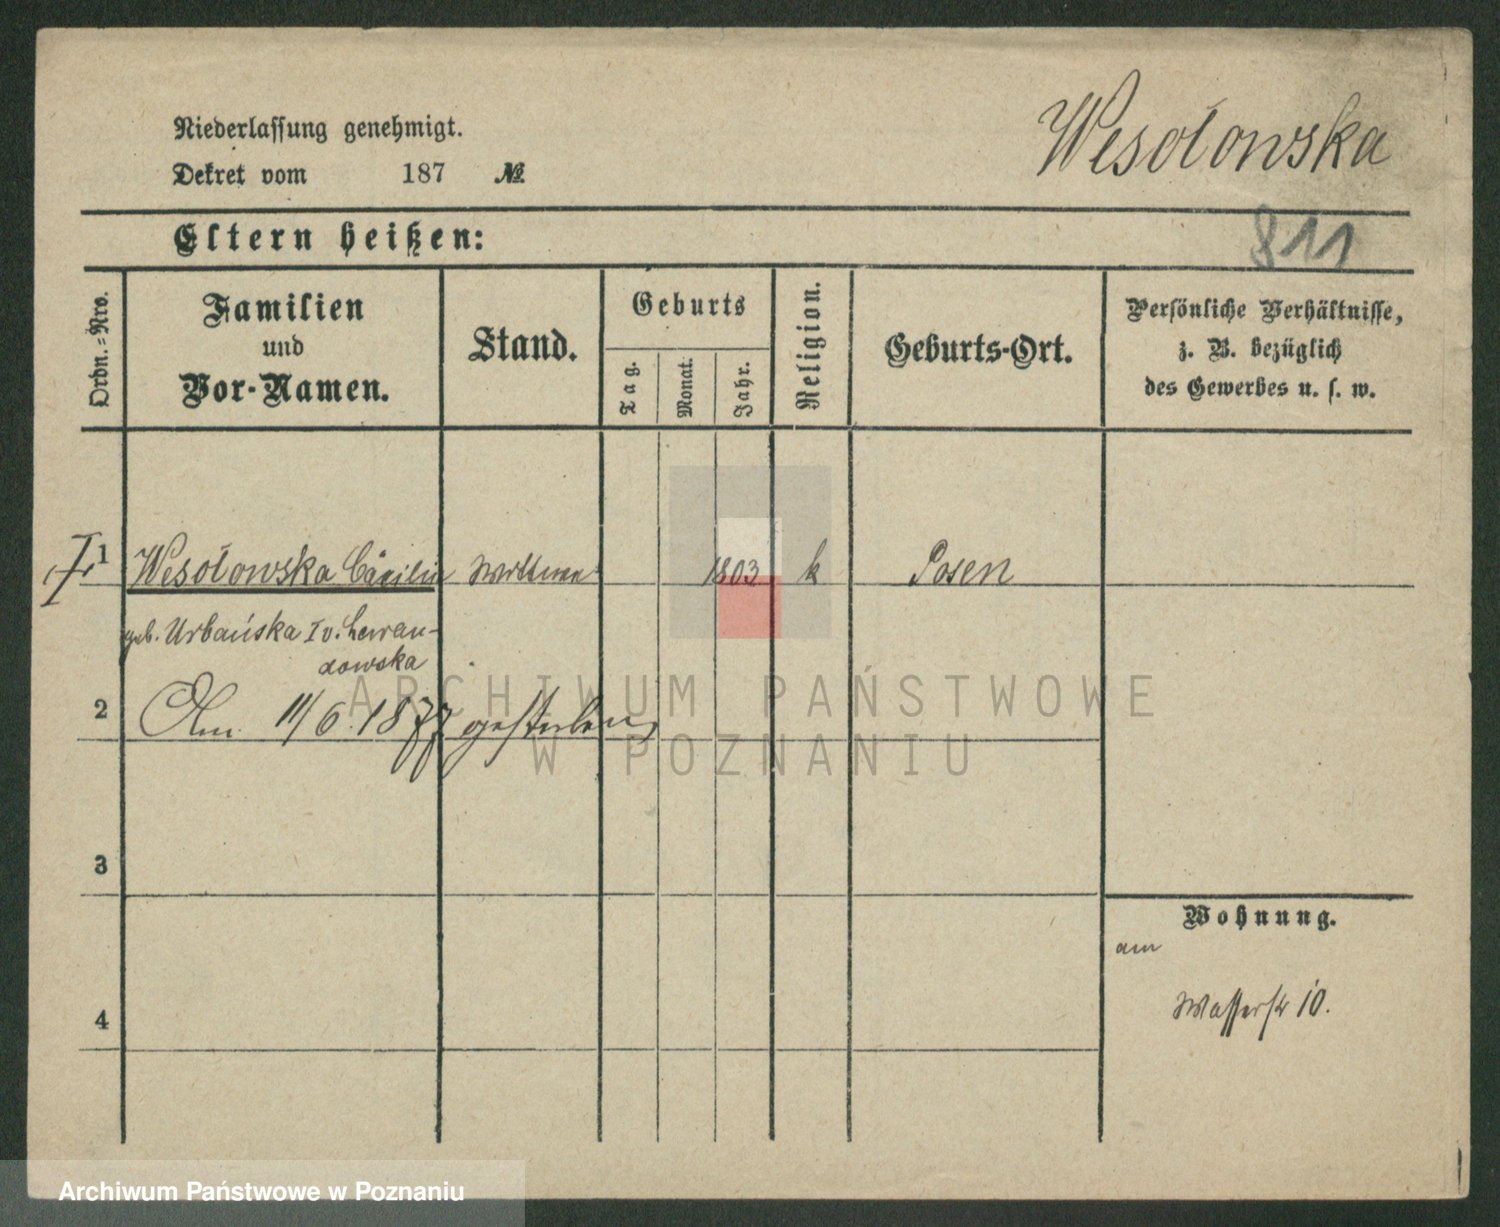 Niederlassung genehmigt.
Dekret vom 187 №
Wesołowska
Eltern heißen:
811
Ordn.=Nro.
Familien
und
Vor-Namen.
Stand.
Geburts
Tag.
Monat.
Jahr.
Religion.
Geburts-Ort.
Persönliche Verhältnisse,
z. B. bezüglich
des Gewerbes u. s. w.
1 Wesołowska Cäcilie Wittwe 1803 k Posen
geb. Urbańska I v. Lewan-
dowska
2 Am 11/6. 1877 gestorben
3
Wohnung.
am
Wasserstr 10.
4
ARCHIWUM PAŃSTWOWE
W POZNANIU
Archiwum Państwowe w Poznaniu